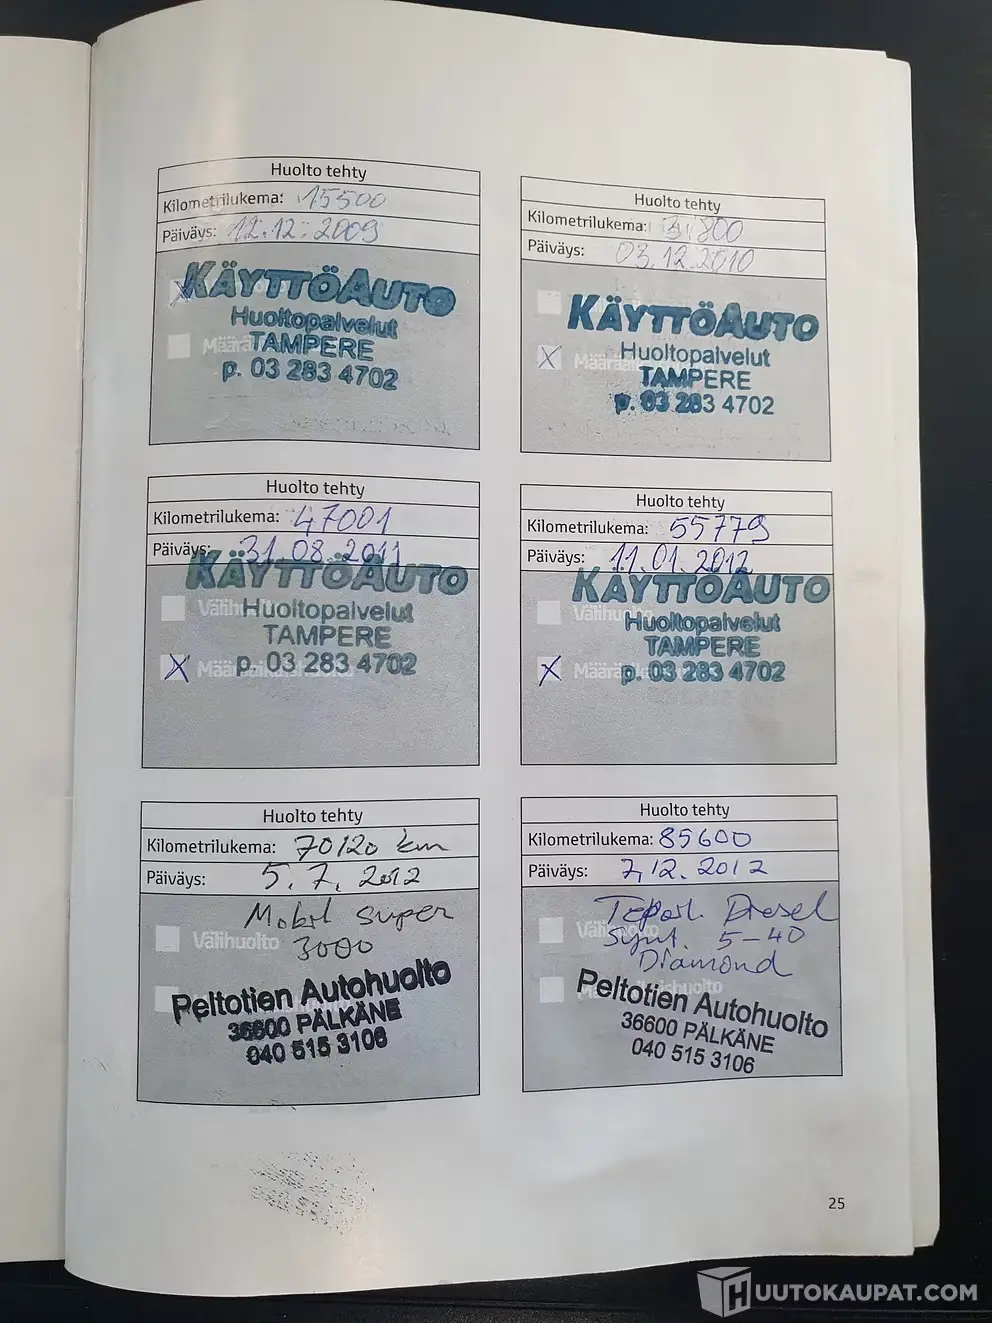 Huolto tehty
Kilometrilukema: 15500
Päiväys: 12.12.2009
KÄYTTÖAUTO
Huoltopalvelut
TAMPERE
p. 03 283 4702
Huolto tehty
Kilometrilukema: 31800
Päiväys: 03.12.2010
KÄYTTÖAUTO
Huoltopalvelut
TAMPERE
p. 03 283 4702
Huolto tehty
Kilometrilukema: 47001
Päiväys: 31.08.2011
KÄYTTÖAUTO
Välihuolto
Huoltopalvelut
TAMPERE
X
p. 03 283 4702
Huolto tehty
Kilometrilukema: 55779
Päiväys: 11.01.2012
KÄYTTÖAUTO
Välihuolto
Huoltopalvelut
TAMPERE
X
p. 03 283 4702
Huolto tehty
Kilometrilukema: 70120 km
Päiväys: 5.7.2012
Mobil super
Välihuolto 3000
Peltotien Autohuolto
36600 PÄLKÄNE
040 515 3106
Huolto tehty
Kilometrilukema: 85600
Päiväys: 7.12.2012
Diesel
Synt. 5-40
Diamond
Peltotien Autohuolto
36600 PÄLKÄNE
040 515 3106
25
HUUTOKAUPAT.COM